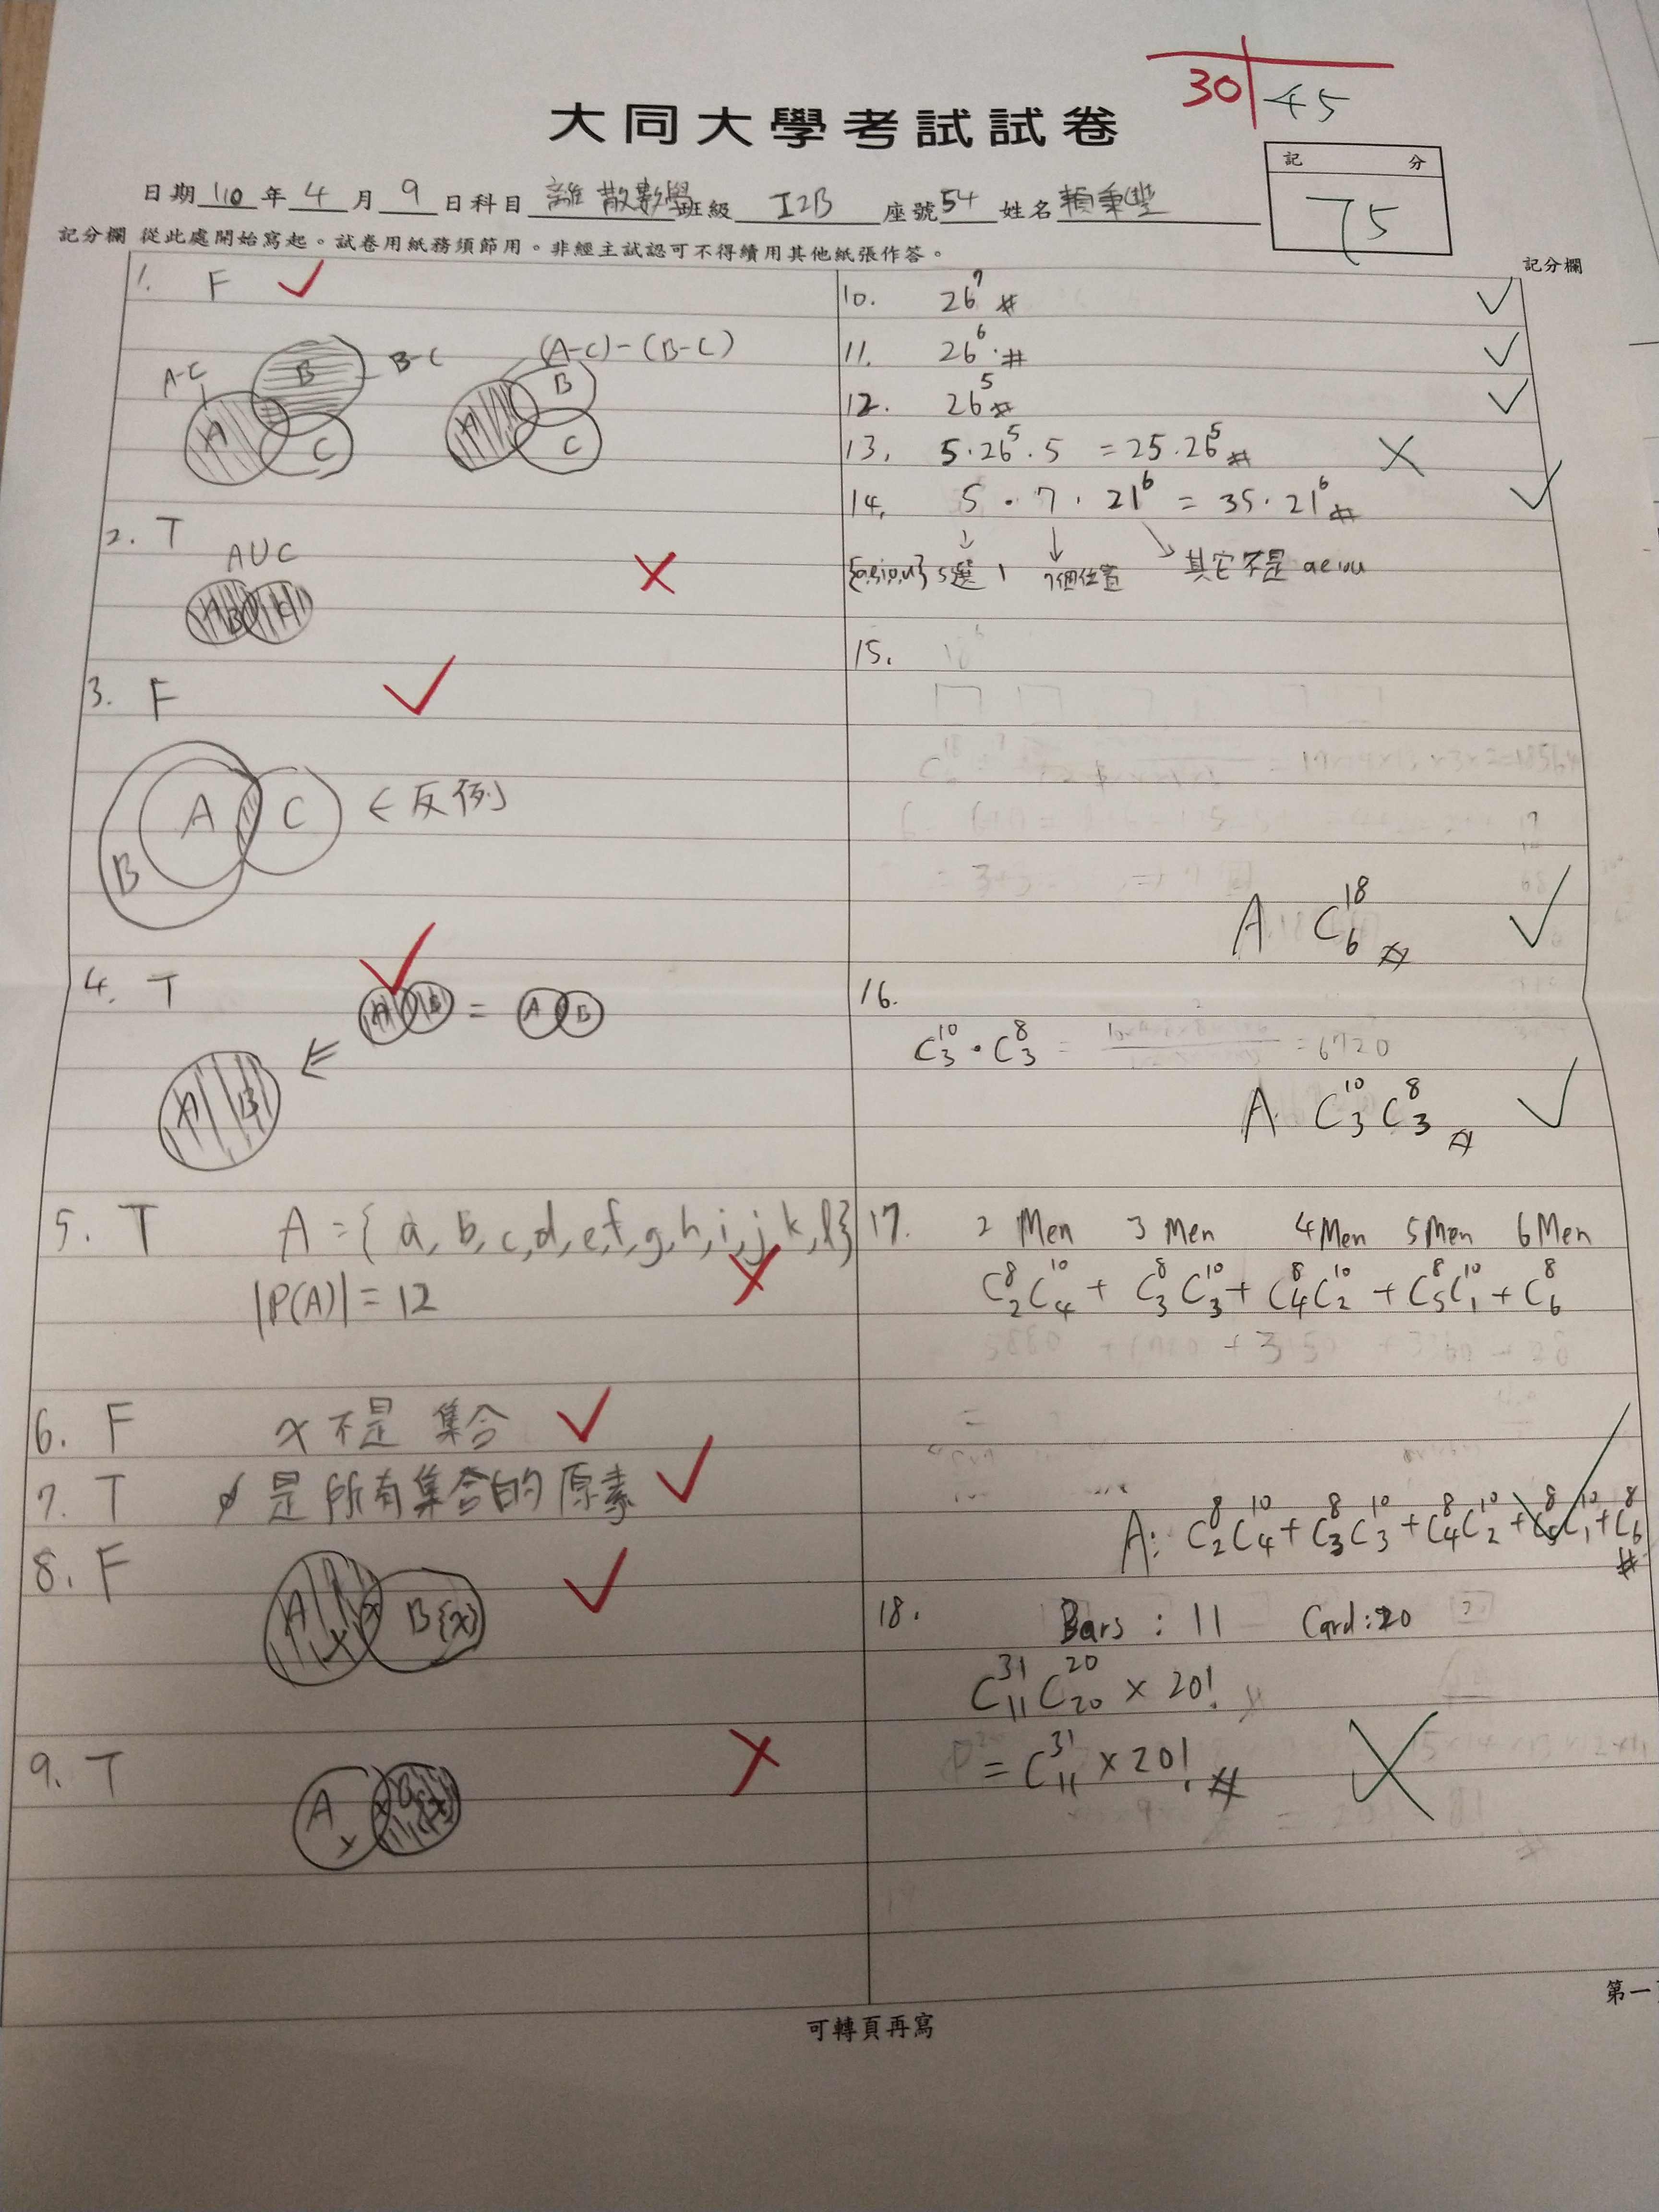 30 45
大同大學考試試卷
記 分
75
日期 110 年 4 月 9 日 科目 離散數學 班級 I2B 座號 54 姓名 賴秉豐
記分欄 從此處開始寫起。試卷用紙務須節用。非經主試認可不得續用其他紙張作答。
記分欄
1. F
A-C B B-C (A-C)-(B-C)
A C A B C
2. T
AUC
3. F
A C ← 反例
B
4. T
A B = A B
A B
5. T A = { a, b, c, d, e, f, g, h, i, j, k, l }
|P(A)| = 12
6. F x 不是 集合
7. T ∅ 是所有集合的原素
8. F
A x x B {x}
9. T
A x x B {x}
10. 26⁷ #
11. 26⁶ #
12. 26⁵ #
13. 5·26⁵·5 = 25·26⁵ #
14. 5 · 7 · 21⁶ = 35·21⁶ #
{a,e,i,o,u} 5選1 7個位置 其它不是 aeiou
15.
A: C¹⁸₆ #
16.
C¹⁰₃ · C⁸₃ = = 6720
A: C¹⁰₃ C⁸₃ #
17. 2 Men 3 Men 4 Men 5 Men 6 Men
C⁸₂C¹⁰₄ + C⁸₃C¹⁰₃ + C⁸₄C¹⁰₂ + C⁸₅C¹⁰₁ + C⁸₆
A: C⁸₂C¹⁰₄ + C⁸₃C¹⁰₃ + C⁸₄C¹⁰₂ + C⁸₅C¹⁰₁ + C⁸₆ #
18. Bars : 11 Card: 20
C³¹₁₁ C²⁰₂₀ × 20!
= C³¹₁₁ × 20! #
第一
可轉頁再寫